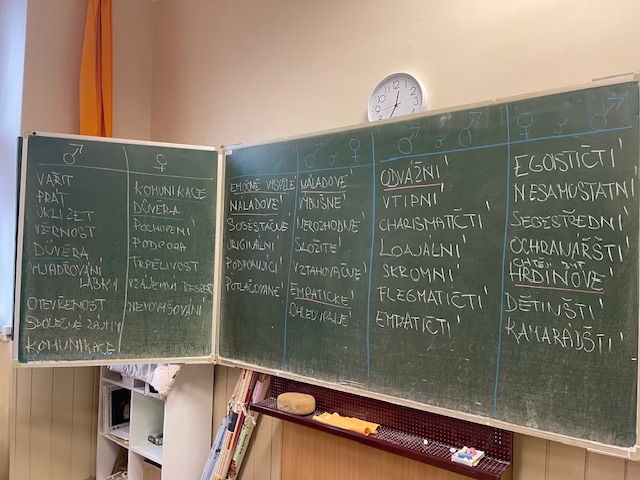 ♂
VAŘIT
PRÁT
UKLÍZET
VĚRNOST
DŮVĚRA
VYJADŘOVÁNÍ
LÁSKY
OTEVŘENOST
SPOLEČNÉ ZÁJMY
KOMUNIKACE
♀
KOMUNIKACE
DŮVĚRA
POCHOPENÍ
PODPORA
TRPĚLIVOST
VZÁJEMNÝ RESPEKT
♀ ♀
EMOČNĚ VYSPĚLÉ
NÁLADOVÉ
SOBĚSTAČNÉ
ORIGINÁLNÍ
PODPORUJÍCÍ
POTLAČOVANÉ
♂ ♂ ♀
NÁLADOVÉ
VÝBUŠNÉ
NEROZHODNÉ
SLOŽITÉ
VZTAHOVAČNÉ
EMPATICKÉ
OHLEDUPLNÉ
♂ ♂ ♂
ODVÁŽNÍ
VTIPNÍ
CHARISMATIČTÍ
LOAJÁLNÍ
SKROMNÍ
FLEGMATIČTÍ
EMPATIČTÍ
♀ ♂ ♂
EGOISTIČTÍ
NESAMOSTATNÍ
SEBESTŘEDNÍ
OCHRANÁŘŠTÍ
CHTĚJÍ BÝT
HRDINOVÉ
DĚTINŠTÍ
KAMARÁDŠTÍ